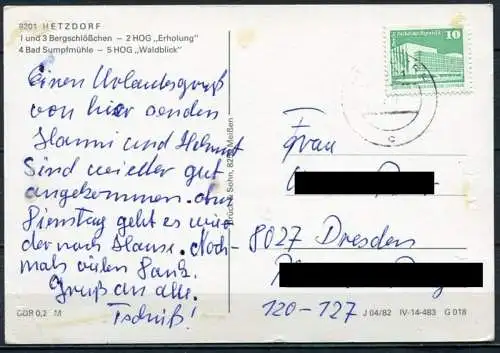 9201 HETZDORF
1 und 3 Bergschlößchen – 2 HOG „Erholung"
4 Bad Sumpfmühle – 5 HOG „Waldblick"
Einen Urlaubsgruß
von hier senden
Hanni und Helmut
Sind wieder gut
angekommen. Am
Dienstag geht es wie-
der nach Hause. Noch-
mals vielen Dank.
Gruß an alle.
Tschüß!
GDR 0,2 M
Brück & Sohn, 8250 Meißen
10
Frau
8027 Dresden
120-127
J 04/82 IV-14-483 G 018